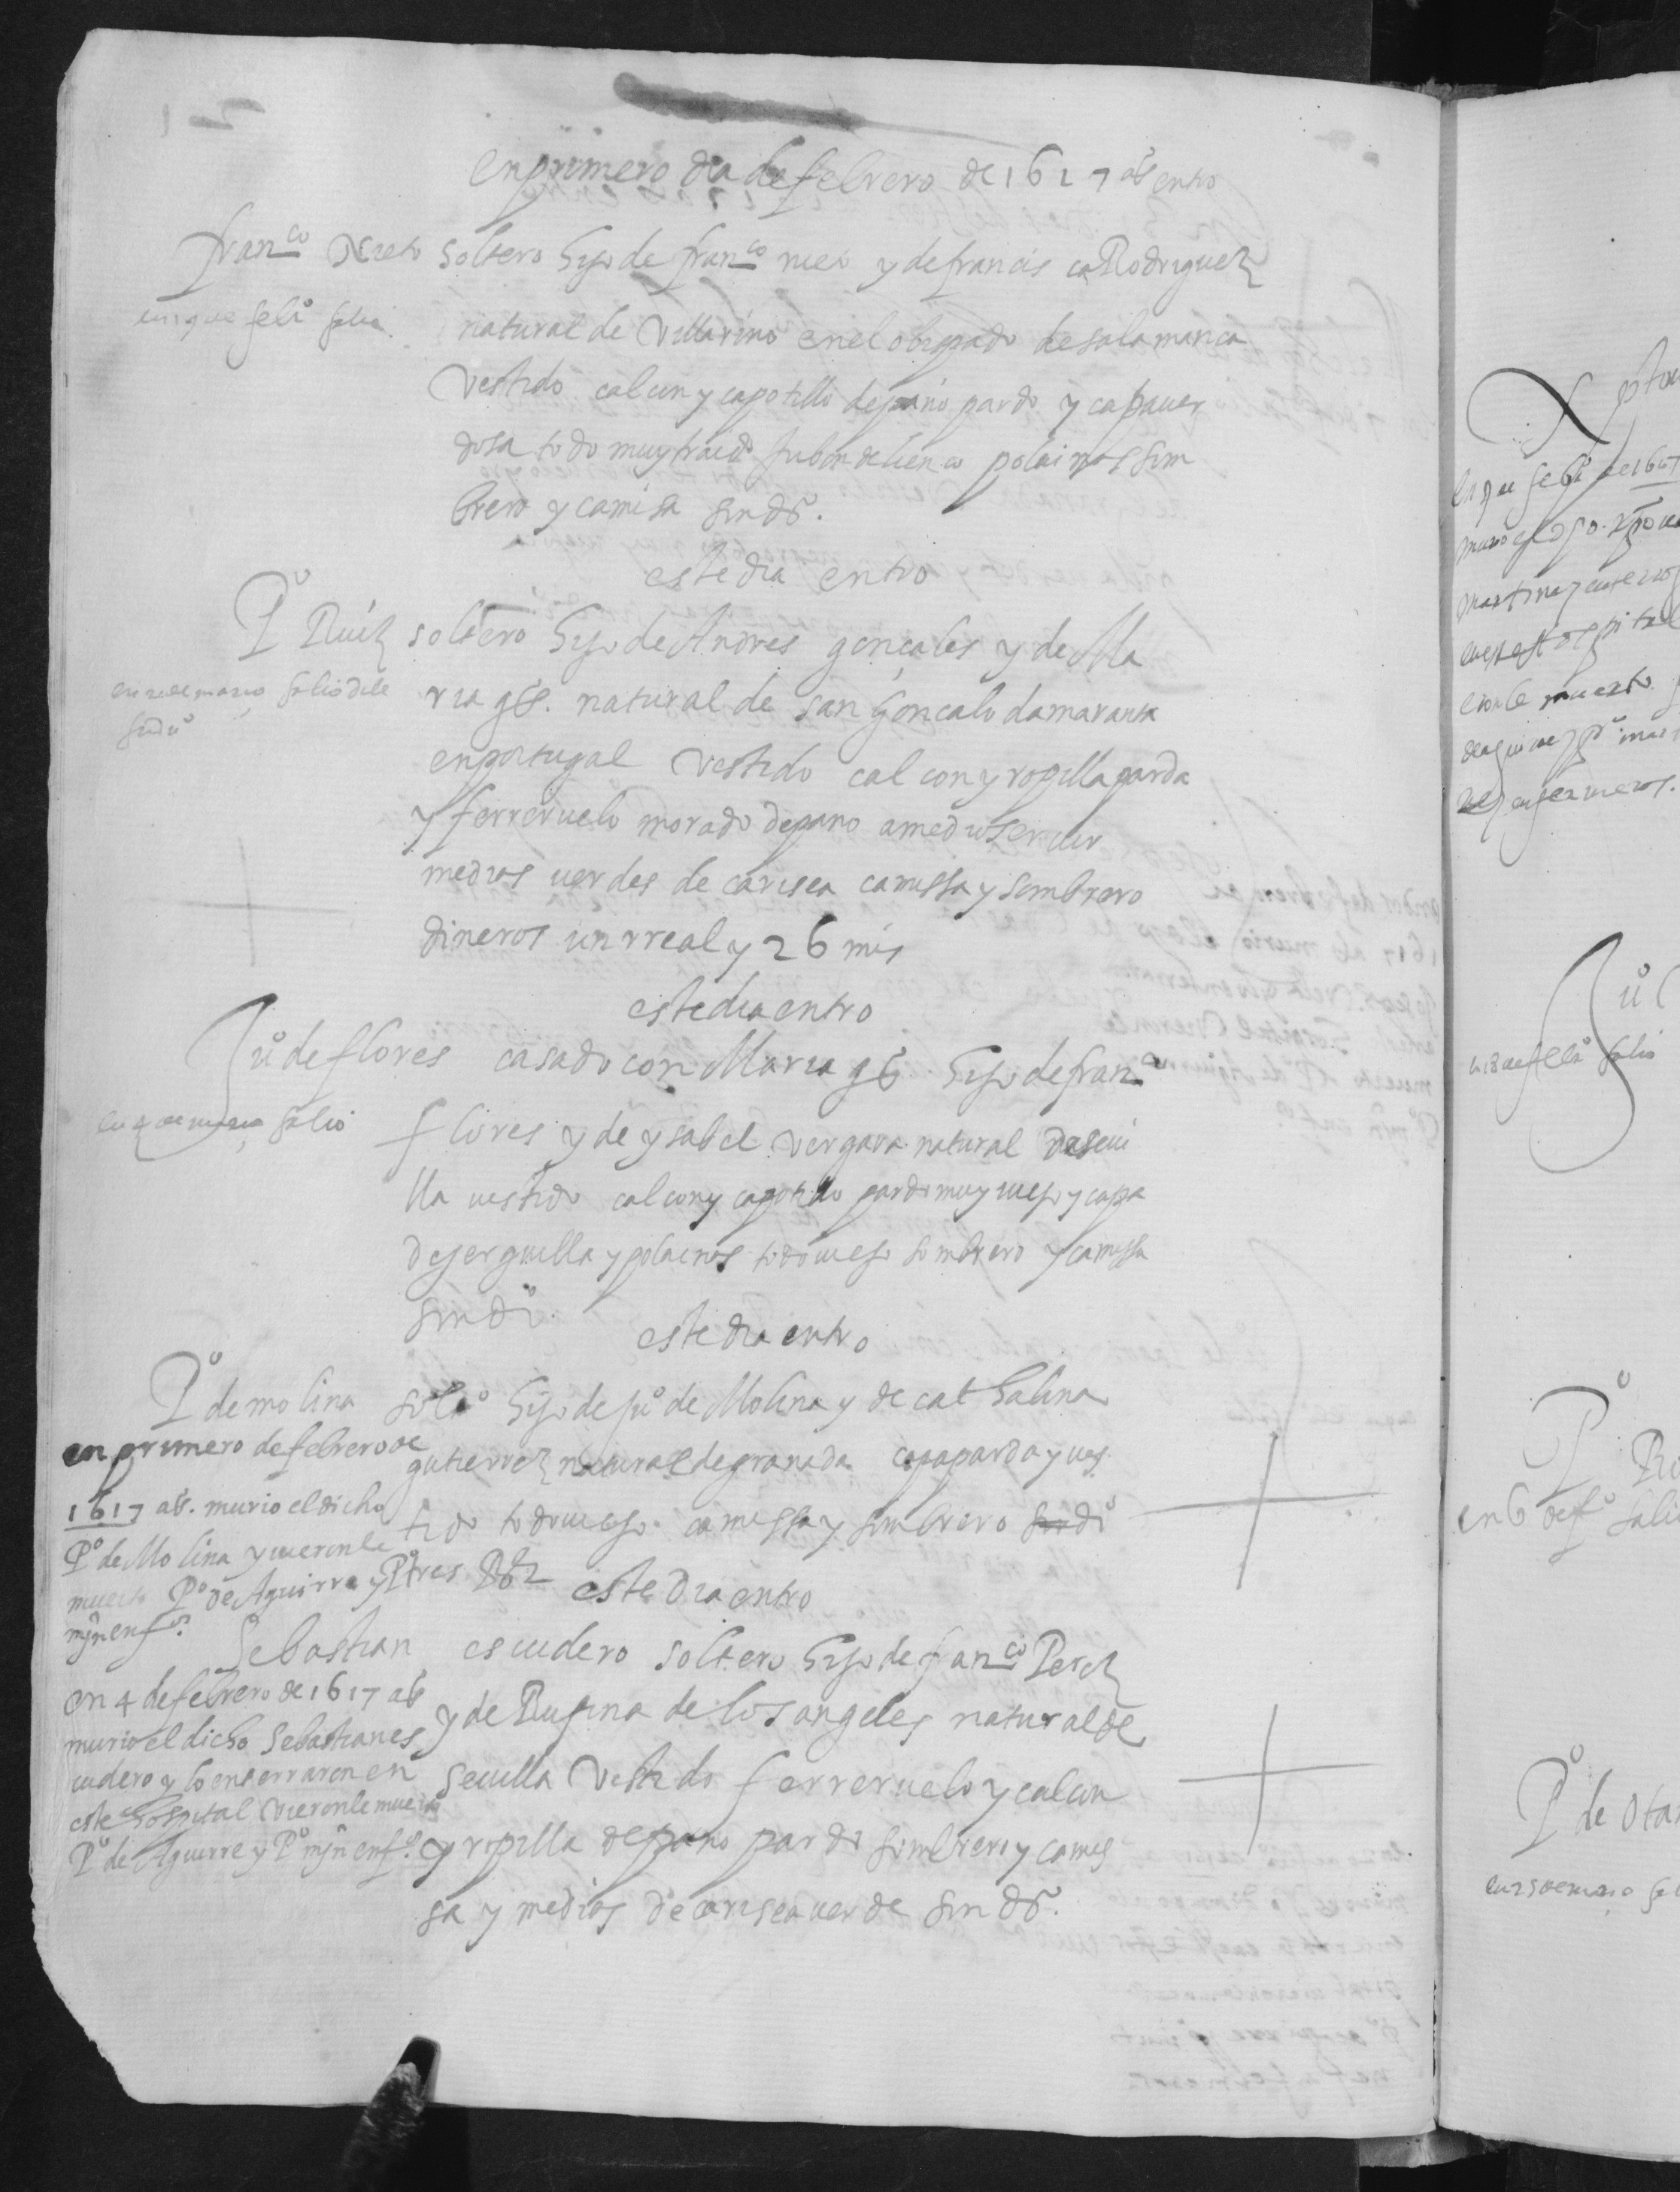 en primero dia de febrero de 1617 as entro
franco Nieto soltero hijo de franco nieto y de francis ca Rodriguez
en 19 de feb.o salio
natural de Villarino en el obispado de salamanca
Vestido calcon y capotillo de paño pardo y capa uer
dosa todo muy traido jubon de lienco polainas som
brero y camisa sin dos.
este dia entro
Po Ruiz soltero hijo de Andres goncales y de Ma
en 2 de março salio
ria gs. natural de san Goncalo damaranta
en portugal Vestido calcon y ropilla parda
y ferreruelo morado de pano a medio seruir
medias uerdes de carisea camissa y sombrero
dineros un rreal y 26 mrs
este dia entro
Juo de flores casado con Maria gs hijo de franco
en 4 de março salio
flores y de ysabel vergara natural de seui
lla uestido calcon y capotillo pardo muy uiejo y capa
de jerguilla y polainas todo uiejo sombrero y camissa
sin do.
este dia entro
Po de molina solto hijo de juo de Molina y de cathalina
gutierrez natural de granada capa parda y ues
tido todo uiejo camissa y sombrero sin do
en primero de febrero de
1617 as. murio el dicho
Po de Molina y uieronle
muerto Po de Aguirre y Po
mrn enfos.
este dia entro
Sebastian escudero soltero hijo de franco Perez
y de Rufina de los angeles natural de
seuilla Vestido ferreruelo y calcon
y ropilla de pano pardo sombrero y camis
sa y medias de carisea uerde sin dos.
en 4 de febrero de 1617 as
murio el dicho Sebastian es
cudero y lo enterraron en
este hospital vieronle muerto
Po de Aguirre y Po mrn enfos.
en que feb.o de 1617
martinez
en este ospital
uieronle muerto
enfermeros.
Juo
en 18 de feb.o salio
Po
en 6 de fo salio
Po de ota
en 25 de março